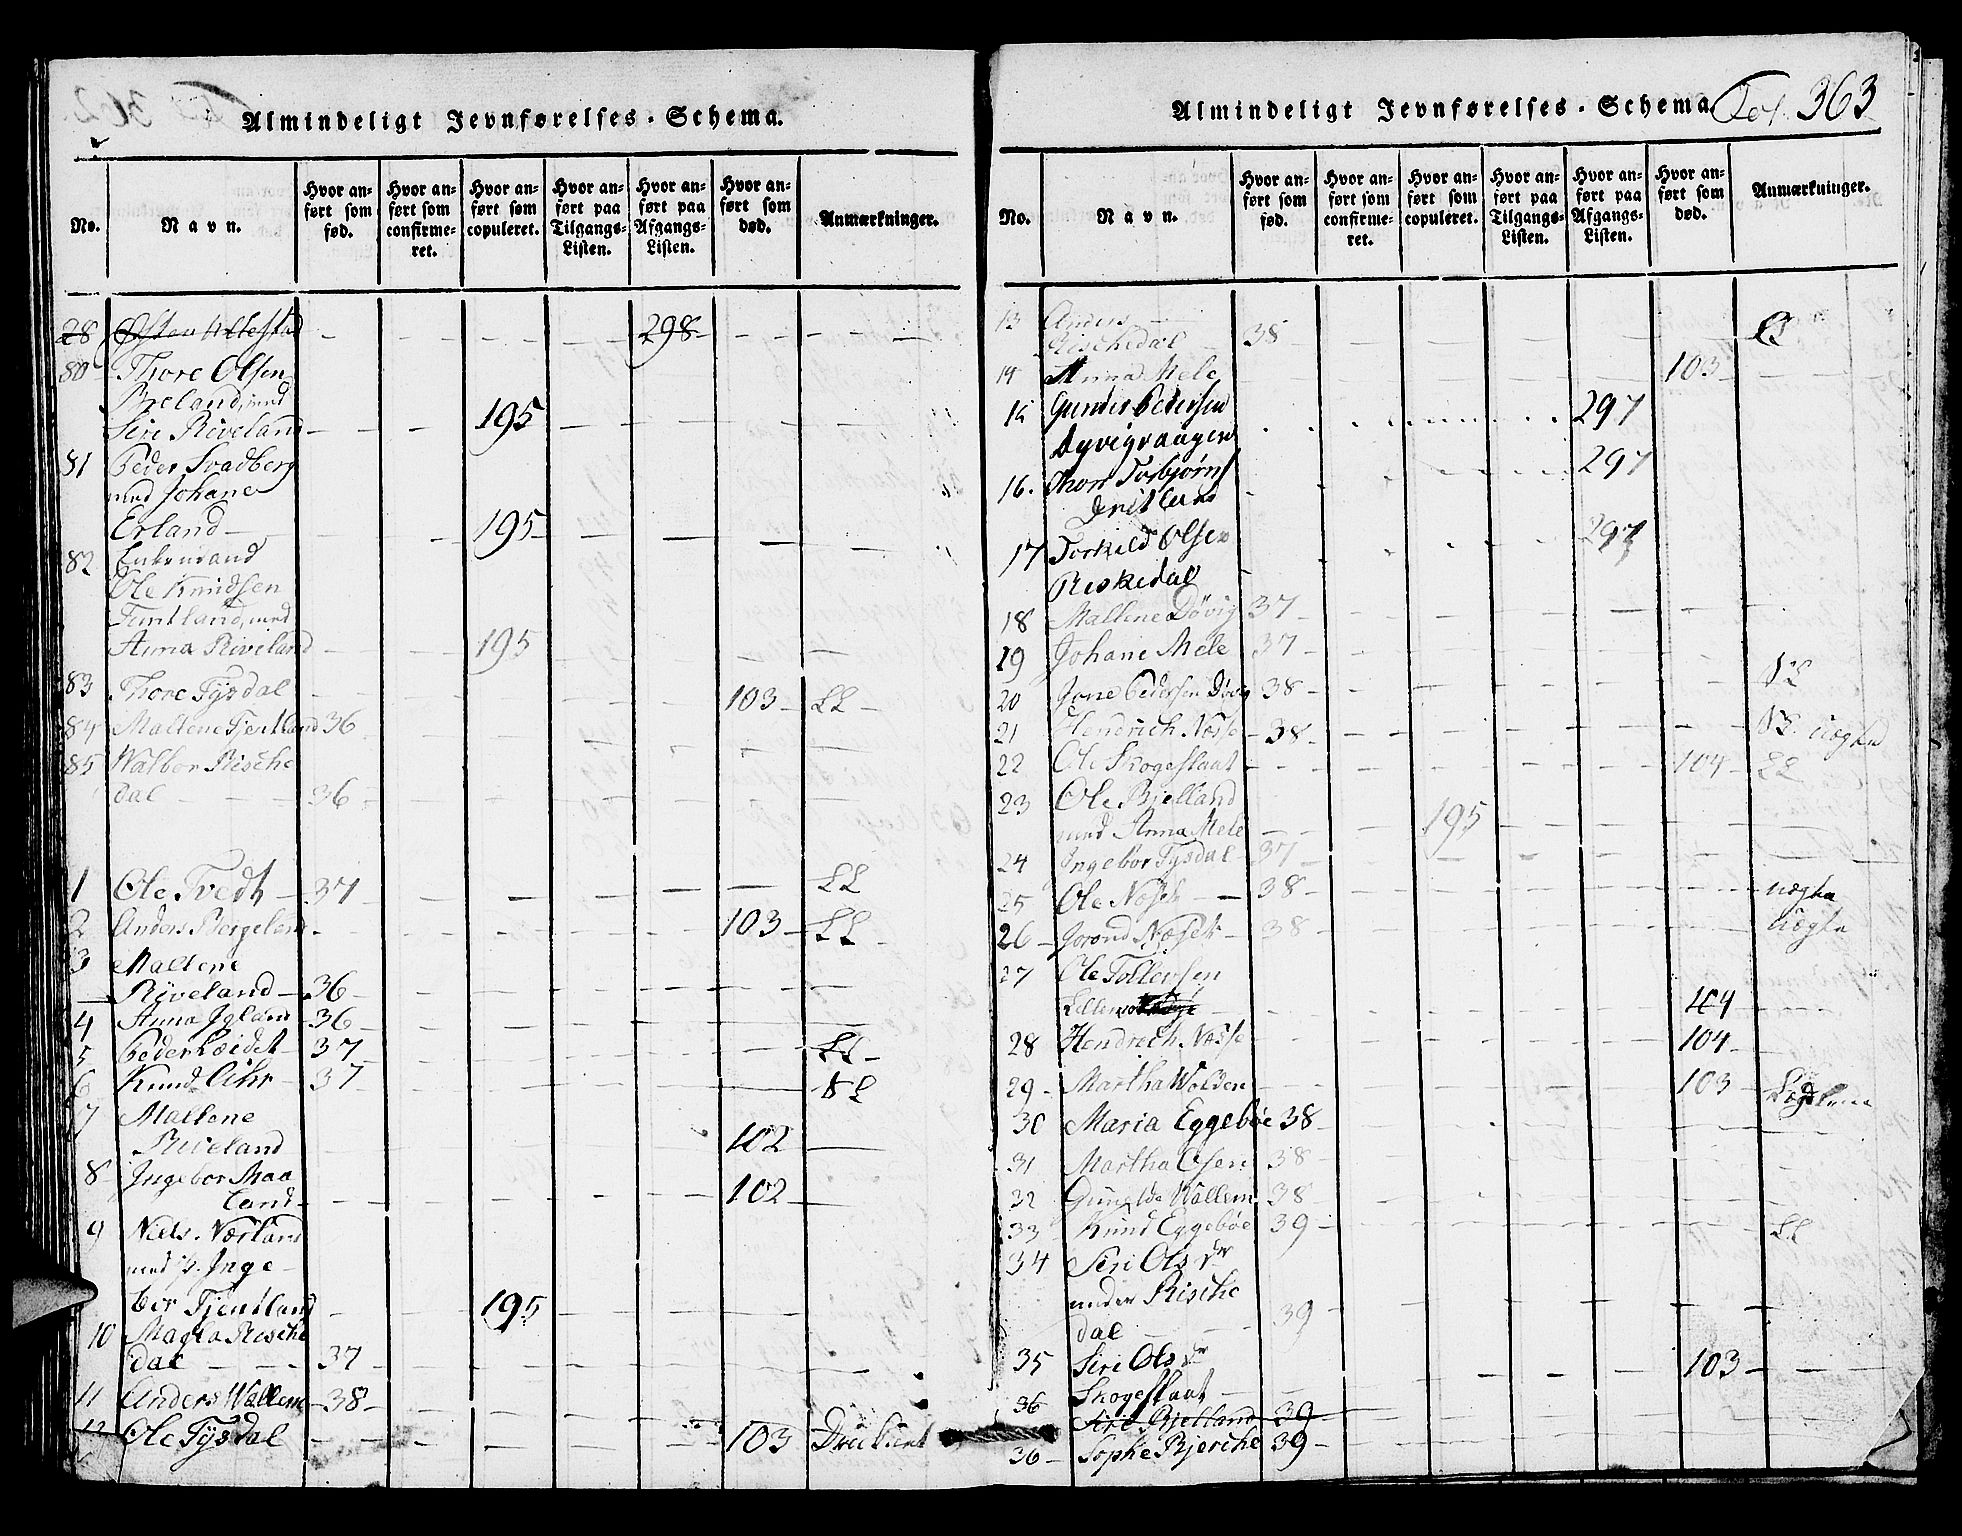 Almindeligt Jevnførelses-Schema.
No.
Navn.
Hvor anført som fød.
Hvor anført som confirmeret.
Hvor anført som copuleret.
Hvor anført paa Tilgangs-Listen.
Hvor anført paa Afgangs-Listen.
Hvor anført som død.
Anmærkninger.
28 Østen 298
80 Thore Olsen
Breland, med
Siri Riveland 195
81 Peder Svadberg
med Johane
Erland 195
82 Enkemand
Ole Knudsen
Tentland, med
Anna Riveland 195
83 Thore Tysdal 103 LL
84 Maltene Tjentland 36
85 Walbor Rische
dal 36
1 Ole Tvedt 37 LL
2 Anders Bergeland 103 LL
3 Maltene
Riveland 36
4 Anna Igland 36
5 Peder Eidet 37 LL
6 Knud 37 LL
7 Maltene
Riveland 102
8 Ingebor Maa
land 102
9 Niels Nærland
med p. Inge
bor Tjentland 195
10 Magla Rische
dal 37
11 Anders Wallem 38
12 Ole Tysdal 103
Almindeligt Jevnførelses-Schema.
Fol. 363
No.
Navn.
Hvor anført som fød.
Hvor anført som confirmeret.
Hvor anført som copuleret.
Hvor anført paa Tilgangs-Listen.
Hvor anført paa Afgangs-Listen.
Hvor anført som død.
Anmærkninger.
13 Anders
Rischedal 38
14 Anna Mele 103
15 Gunder Pedersen 297
Dyvigvaagen
16. Thore Torbjørns 297
17 Torkild Olsen 297
Reskedal
18 Maltene Døvig 37
19 Johane Mele 37
20 Jone Pedersen Døvig 38
21 Hendrich Næsse 38 Uægte
22 Ole Skogeslaat 104 LL
23 Ole Bjelland
med Anna Mele 195
24 Ingebor Tysdal 37
25 Ole Næset 38 uægte
26 Gorond Næset 38 Uægte
27 Ole Tollevsen
104
28 Hendrech Næsse 104
29 Martha Wolden 103
30 Maria Eggebøe 38
31 Martha Osen 38
32 Gunilde Wallem 38
33 Knud Eggebøe 39 LL
34 Siri Ols dr
under Rische
dal 39
35 Siri Ols dr
Skogeslaat 103
36 Siri Bjelland 39
36 Sophe Bjerche 39